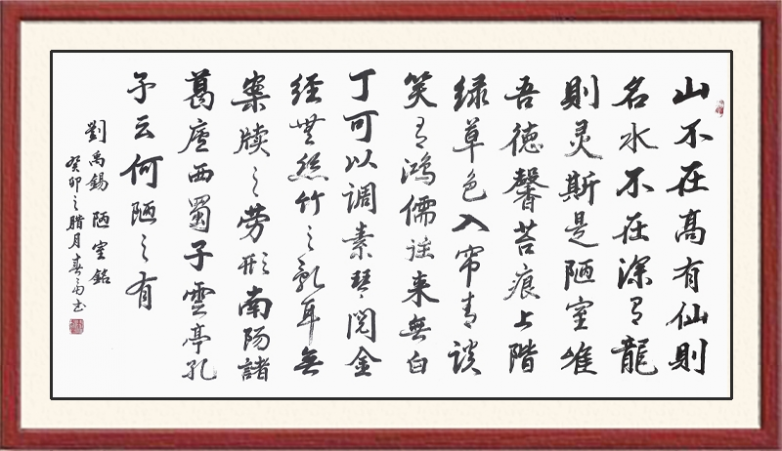 山不在高有仙則
名水不在深有龍
則灵斯是陋室惟
吾德馨苔痕上階
绿草色入帘青談
笑有鸿儒往来無白
丁可以调素琴閲金
經無丝竹之亂耳無
案牍之劳形南陽諸
葛廬西蜀子雲亭孔
子云何陋之有
劉禹錫 陋室銘
癸卯之腊月春